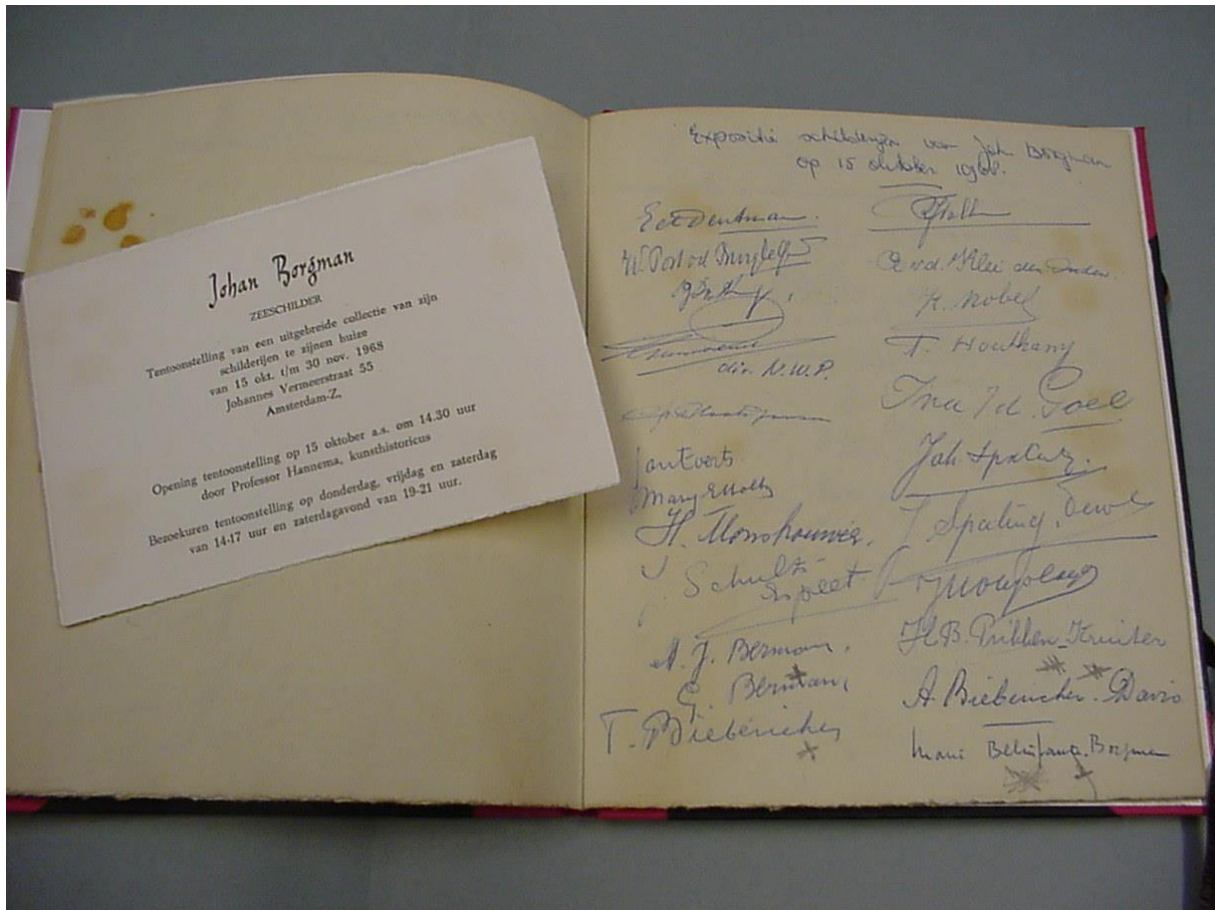 Johan Borgman
ZEESCHILDER
Tentoonstelling van een uitgebreide collectie van zijn
schilderijen te zijnen huize
van 15 okt. t/m 30 nov. 1968
Johannes Vermeerstraat 55
Amsterdam-Z.
Opening tentoonstelling op 15 oktober a.s. om 14.30 uur
door Professor Hannema, kunsthistoricus
Bezoekuren tentoonstelling op donderdag, vrijdag en zaterdag
van 14-17 uur en zaterdagavond van 19-21 uur.
Expositie schilderijen van Joh. Borgman
op 15 oktober 1968.
W. Post
dir. N.W.P.
Jan Evers
Mary
H. Monshouwer.
J. Schultz
A. J. Berman.
G. Berman,
T. Biebericher
K. Nobel
T. Houtkamp
Ina
Goel
Joh Spaling.
Spaling.
H.B. Pribben-Kruiter
A. Biebericher-Davis
Borgman